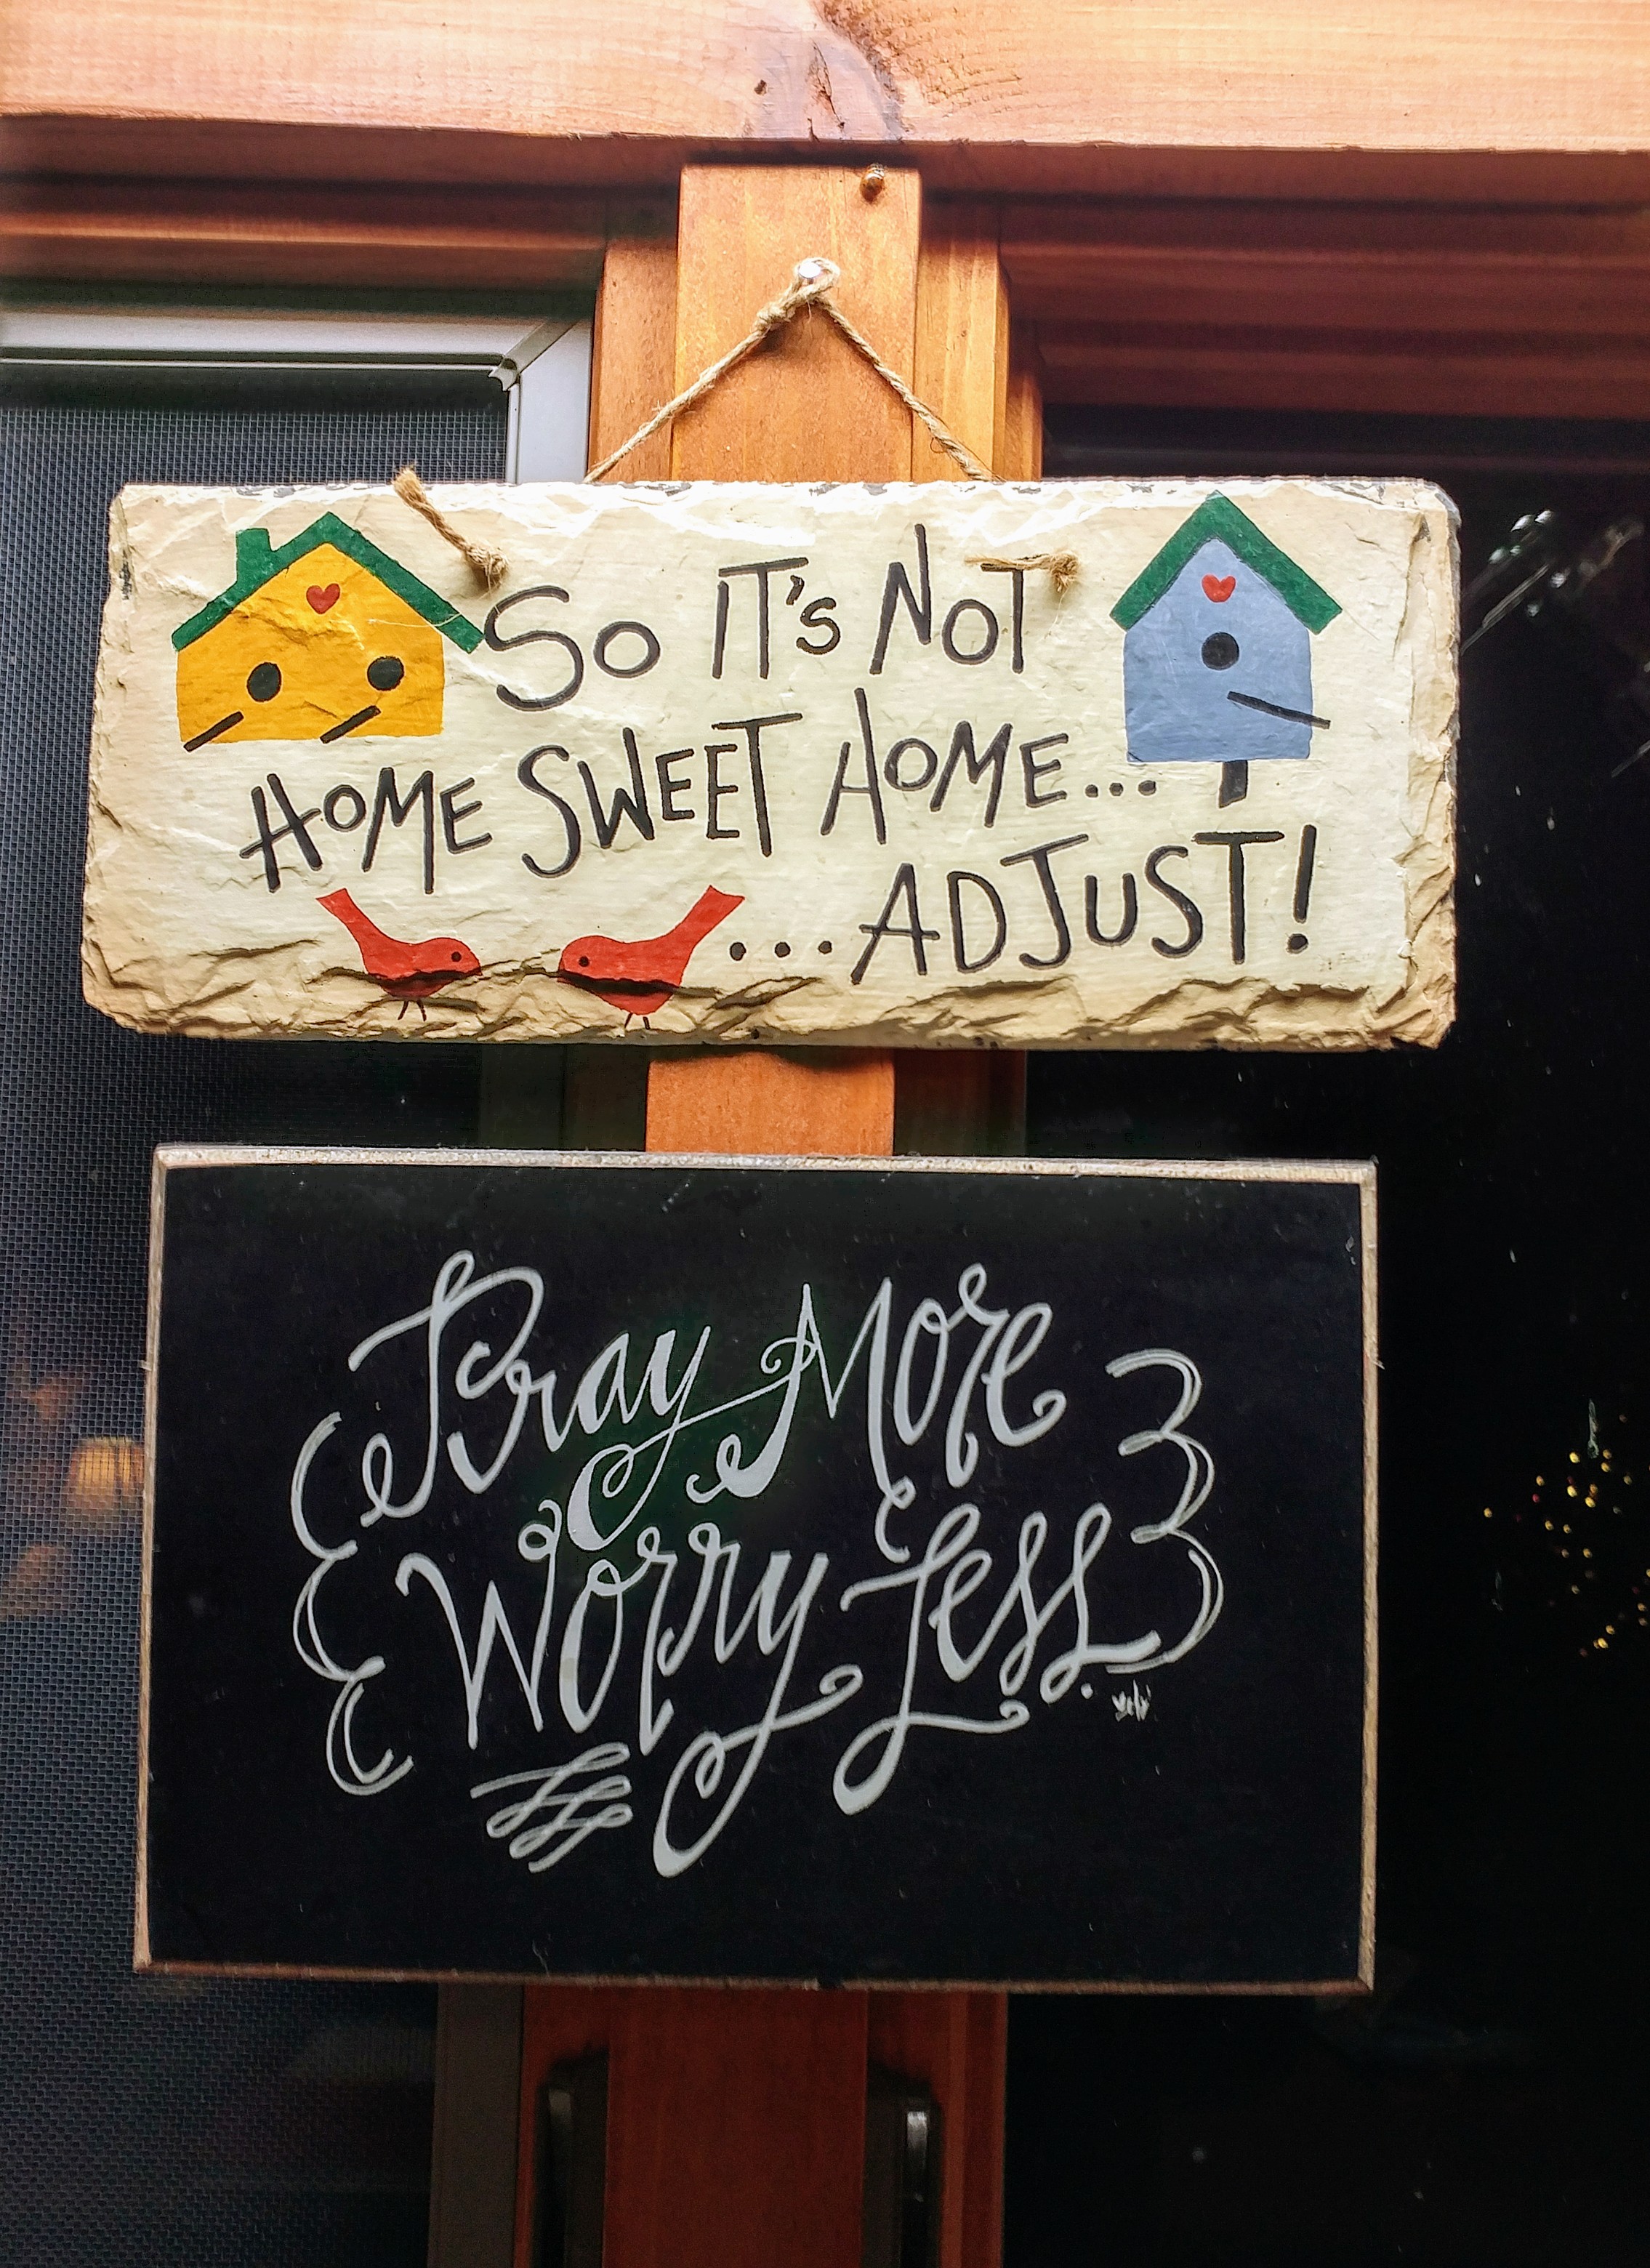 So IT's NOT
HOME SWEET HOME...
...ADJUST!
Pray More
Worry Less.